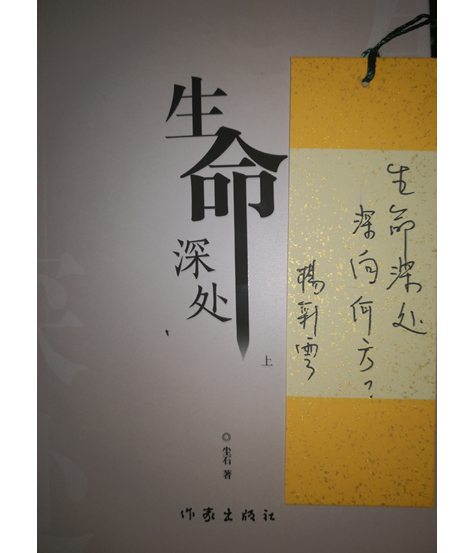 生命
深处
上
◎尘石 著
作家出版社
生命深处
深向何方？